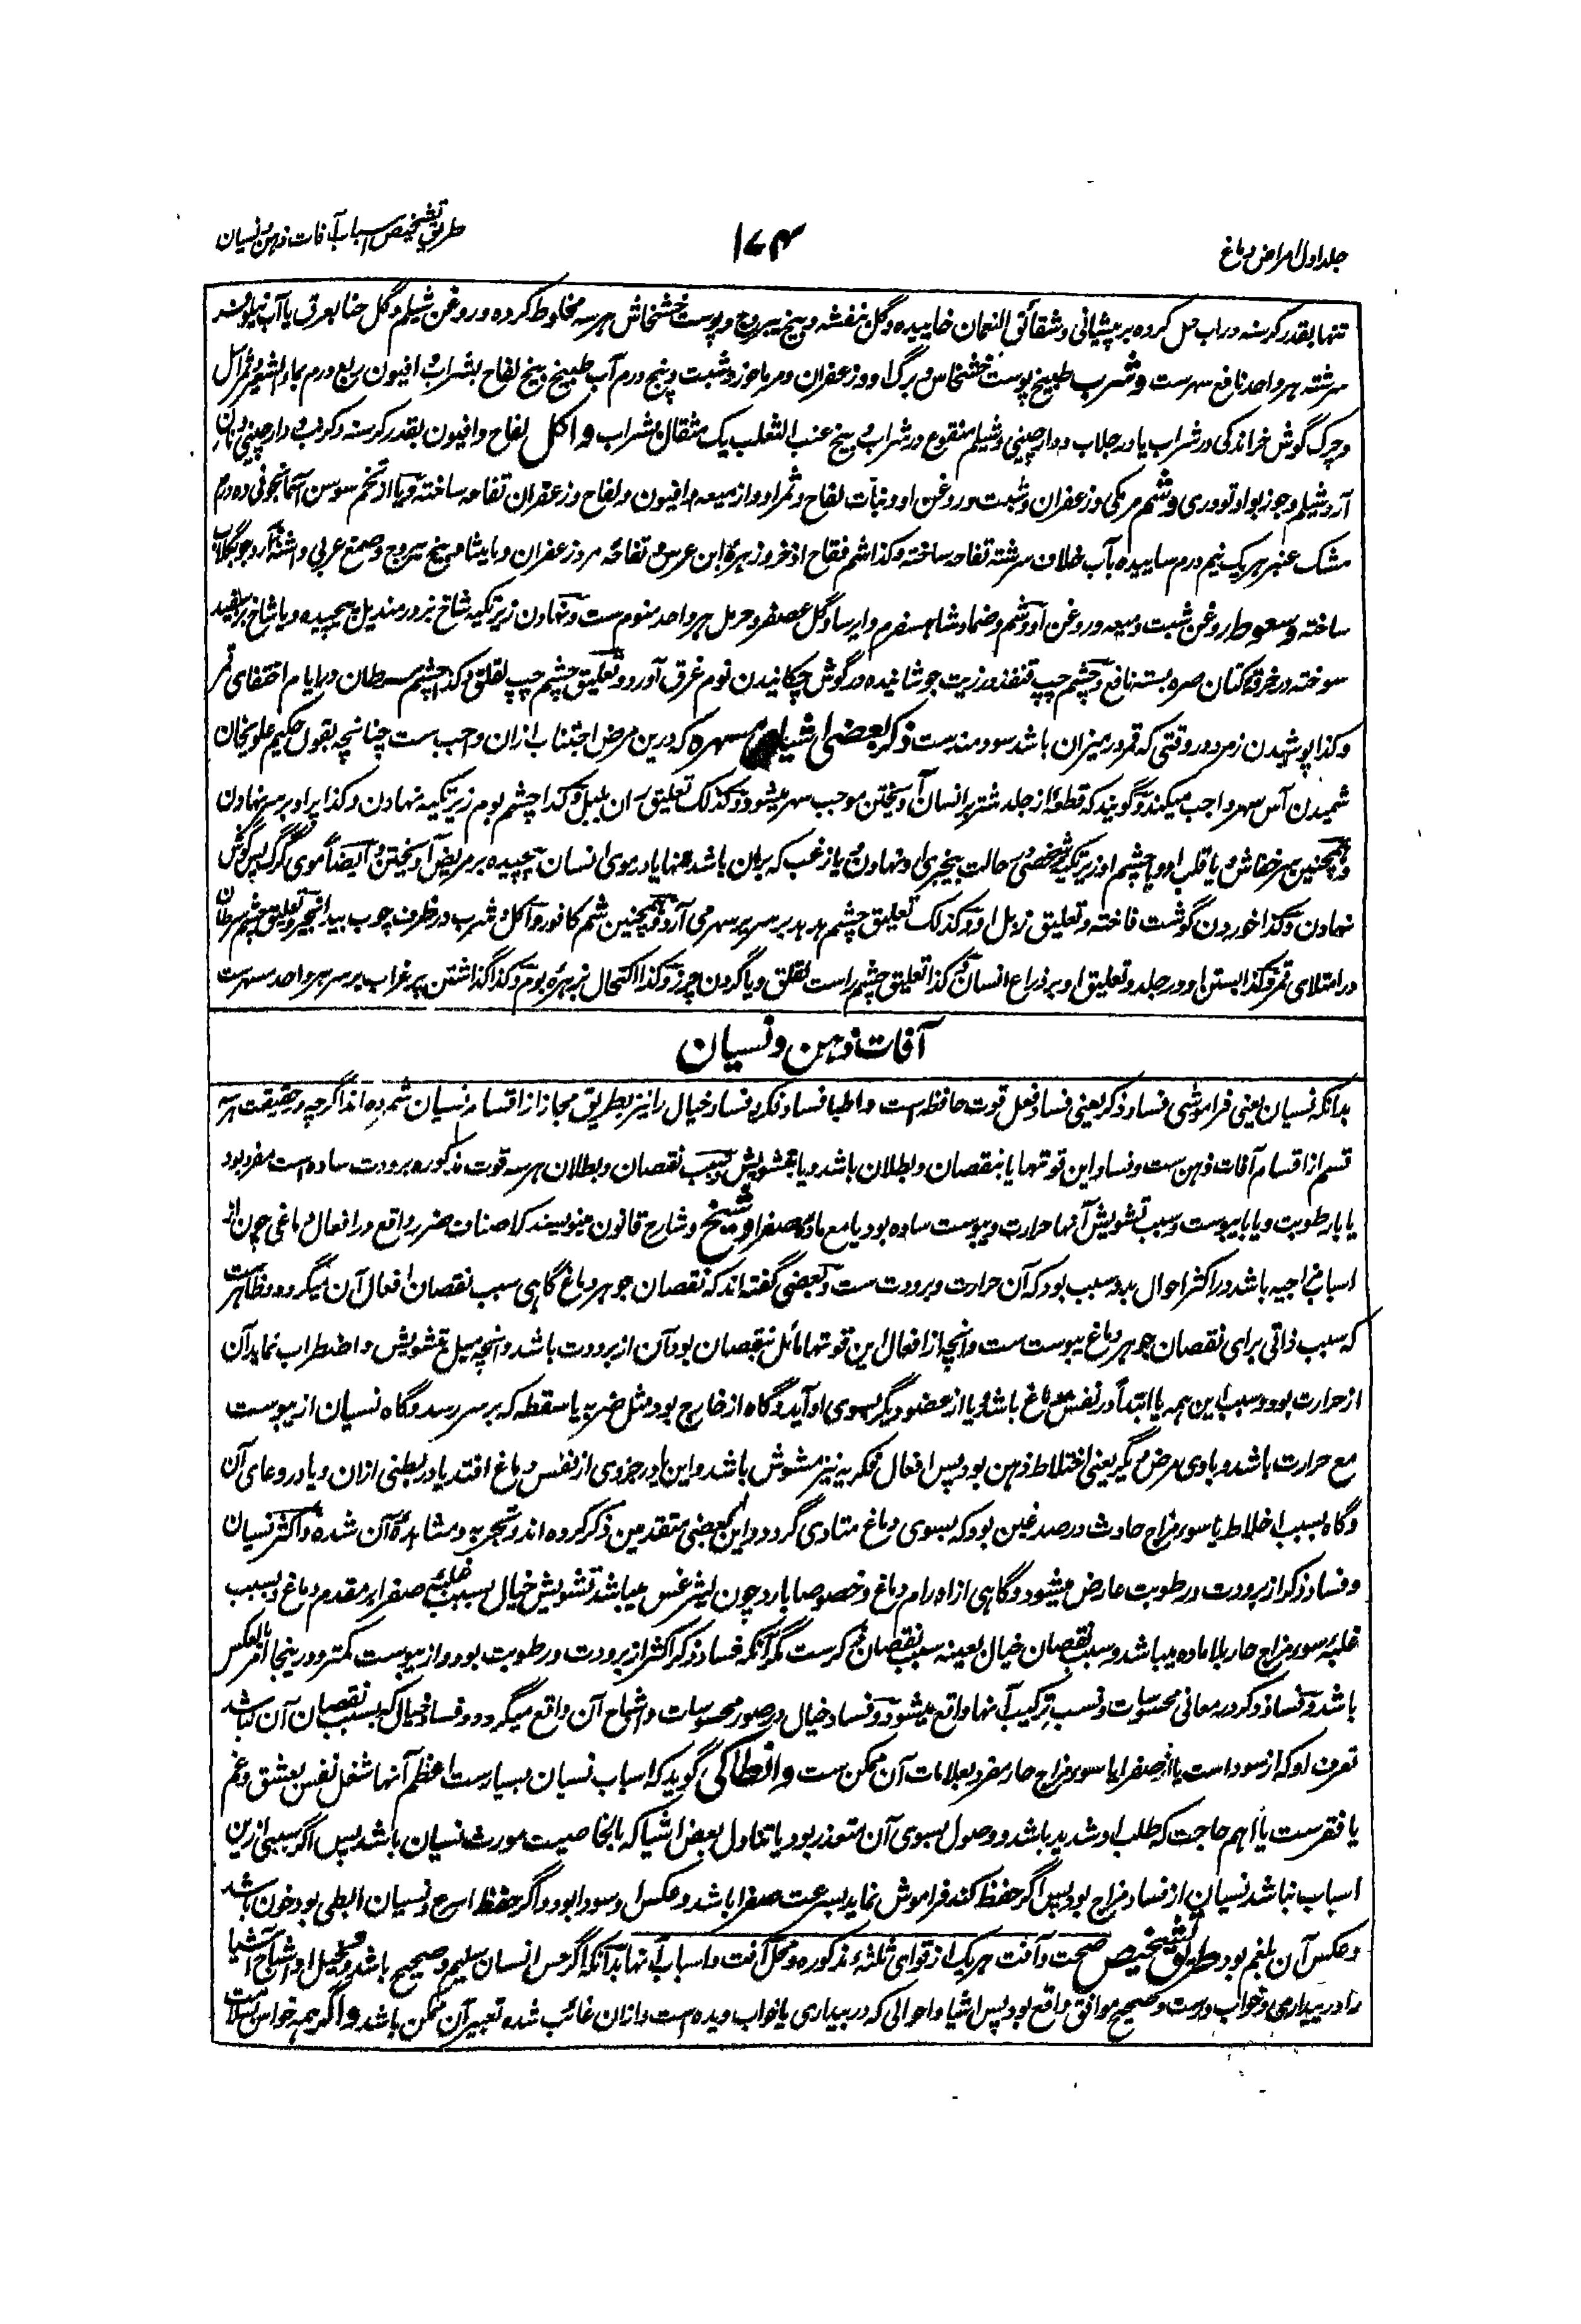 جلد اول امراض دماغ
۱۷۴
طریق تشخیص اسباب آفات ذهن و نسیان
تنها بقدر کرسنه در آب حل کرده بر پیشانی و شقائق النعمان خاییده و گل بنفشه و بیخ یبروج و پوست خشخاش هر سه مخلوط کرده و روغن شیلم و گل حنا بعرق یا آب نیلوفر
سرشته هر واحد نافع سهرست و شرب طبیخ پوست خشخاش و برگ او و زعفران و مرماحوز و شبت و پنج درم آب طبیخ و بیخ لفاح بشراب و افیون ربع درم بماء الشعیر و ثمر اثل
و چرک گوش خر اندکی در شراب یا در جلاب و دارچینی و شیلم منقوع در شراب و بیخ عنب الثعلب یک مثقال بشراب و اکل لفاح و افیون بقدر کرسنه و کرنب و دارچینی و نان
آرد شیلم و جوزبوا و تودری و شم مر مکی و زعفران و شبت و روغن او و نبات لفاح و ثمر او و از میعه و افیون و لفاح و زعفران تفاحه ساخته و یا از تخم سوسن آسمانجونی ده درم
مشک عنبر هر یک نیم درم ساییده بآب خلاف سرشته تفاحه ساخته و کذا شم فقاح اذخر و زهره ابن عرس و تفاحه مر و زعفران و مامیثا و بیخ یبروج و صمغ عربی و اشنه و آرد جو بگلاب
ساخته و سعوط روغن شبت و میعه و روغن او و شم و ضماد شاهسفرم و ایرسا و گل عصفر و حرمل هر واحد منوم ست و نهادن زیر تکیه شاخ بز در مندیل پیچیده و یا شاخ بز سفید
سوخته در خرقه کتان صره بسته نافع و چشم چپ قنفذ در زیت جوشانیده در گوش چکانیدن نوم غرق آورد و تعلیق چشم چپ لقلق و کذا چشم سرطان در ایام اختفای قمر
و کذا پوشیدن زمرد در وقتی که قمر در میزان باشد سودمندست ذکر بعضی اشیای مسهره که درین مرض اجتناب ازان واجب ست چنانچه بقول حکیم علویخان
شمیدن آس سهر واجب میکند و گویند که قطعه از جلد شتر بر انسان آویختن موجب سهر میشود و کذلک تعلیق ران بلبل و کذا چشم بوم زیر تکیه نهادن و کذا پر او بر سر نهادن
و همچنین سر خفاش و یا قلب او و یا چشم او زیر تکیه شخصی در حالت بیخبری او نهادن و یا زغب که بران باشد تنها یا در موی انسان پیچیده بر مریض آویختن و ایضاً موی گرگ پس گوش
نهادن و کذا خوردن گوشت فاخته و تعلیق زبل او و کذلک تعلیق چشم هدهد بر سریر سهر می آرد و همچنین شم کافور و اکل و شرب در ظرف چوب بید انجیر و تعلیق چشم سرطان
در امتلای قمر و کذا بستن او در جلد و تعلیق او بر ذراع انسان و کذا تعلیق چشم راست لقلق و یا گردن چرز و کذا اکتحال زهره بوم و کذا گذاشتن پر غراب بر سر هر واحد مسهرست
آفات ذهن و نسیان
بدانکه نسیان یعنی فراموشی فساد ذکر یعنی فساد فعل قوت حافظه است و اطبا فساد فکر و فساد خیال را نیز بطریق مجاز از اقسام نسیان شمرده اند اگرچه در حقیقت هر سه
قسم از اقسام آفات ذهن ست و فساد این قوتها یا بنقصان و بطلان باشد و یا بتشویش و سبب نقصان و بطلان هر سه قوت مذکوره برودت ساده است مفرد بود
یا با رطوبت و یا با یبوست و سبب تشویش آنها حرارت و یبوست ساده بود یا مع ماده صفرا و شیخ و شارح قانون مینویسند که اصناف ضرر واقع در افعال دماغی چون از
اسباب خارجیه باشد در اکثر احوال بدو سبب بود که آن حرارت و برودت ست و بعضی گفته اند که نقصان جوهر دماغ گاهی سبب نقصان افعال آن میگردد و ظاهرست
که سبب ذاتی برای نقصان جوهر دماغ یبوست ست و آنچه از افعال این قوتها مائل بنقصان بود آن از برودت باشد و آنچه میل بتشویش و اضطراب نماید آن
از حرارت بود و سبب این همه یا ابتداءً در نفس دماغ باشد و یا از عضو دیگر بسوی او آید و گاه از خارج بود مثل ضربه یا سقطه که بر سر رسد و گاه نسیان از یبوست
مع حرارت باشد و با وی مرض دیگر یعنی اختلاط ذهن بود پس افعال فکریه نیز مشوش باشد و این یا در جزوی از نفس دماغ افتد یا در بطنی ازان و یا در وعای آن
و گاه بسبب اخلاط یا سوء مزاج حادث در صدغین بود که بسوی دماغ متادی گردد و این را بعضی متقدمین ذکر کرده اند و تجربه و مشاهده آن شده و اکثر نسیان
و فساد ذکر از برودت و رطوبت عارض میشود و گاهی از اورام دماغ و خصوصا بارد چون لیثرغس میباشد و تشویش خیال بسبب غلبه صفرا بر مقدم دماغ و بسبب
غلبه سوء مزاج حار بلا ماده میباشد و سبب نقصان خیال بعینه سبب نقصان ذکرست مگر آنکه فساد ذکر اکثر از برودت و رطوبت بود و از یبوست کمتر و درینجا امر بالعکس
باشد و فساد ذکر در معانی محسوسات و نسب ترکیب آنها واقع میشود و فساد خیال در صور محسوسات و اشباح آن واقع میگردد و فساد خیال که بسبب نقصان آن نباشد
تعرف او که از سوداست یا از صفرا یا سوء مزاج حار مفرد بعلامات آن ممکن ست و انطاکی گوید که اسباب نسیان بسیارست اعظم آنها شغل نفس بعشق و غم
یا فقرست یا اهم حاجت که طلب او شدید باشد و وصول بسوی آن متعذر بود یا تناول بعض اشیا که بالخاصیت مورث نسیان باشد پس اگر سببی ازین
اسباب نباشد نسیان از فساد مزاج بود پس اگر حفظ کند فراموش نماید بسرعت صفرا باشد و عکس او سودا بود و اگر حفظ اسرع و نسیان ابطی بود خون باشد
و عکس آن بلغم بود طریق تشخیص صحت و آفت هر یک از قوای ثلثه مذکوره و محل آفت و اسباب آنها بدانکه اگر حس انسان سلیم و صحیح باشد و تخیل او اشباح اشیا
را در بیداری و خواب درست و صحیح موافق واقع بود پس اشیا و احوالی که در بیداری یا خواب دیده است و ازان غائب شده تعبیر آن ممکن باشد و اگر همه حواس سلامت